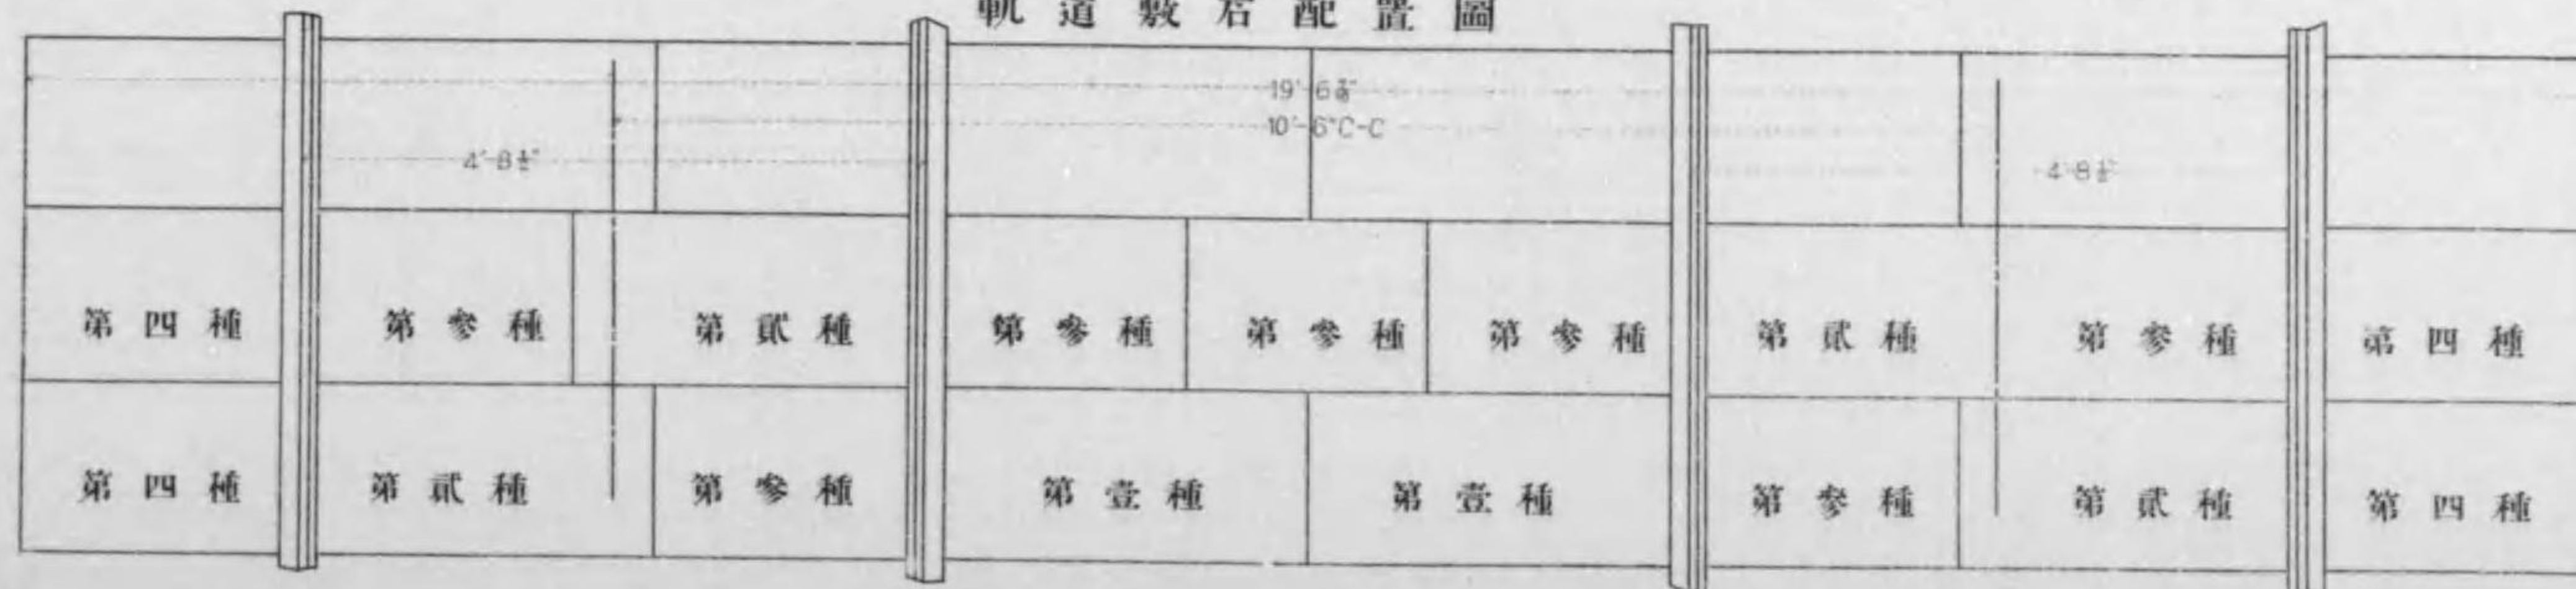 軌道敷石配置圖
19'-6⅞"
10'-6"C-C
4'-8½"
4'-8½"
第四種 第參種 第貳種 第參種 第參種 第參種 第貳種 第參種 第四種
第四種 第貳種 第參種 第壹種 第壹種 第參種 第貳種 第四種